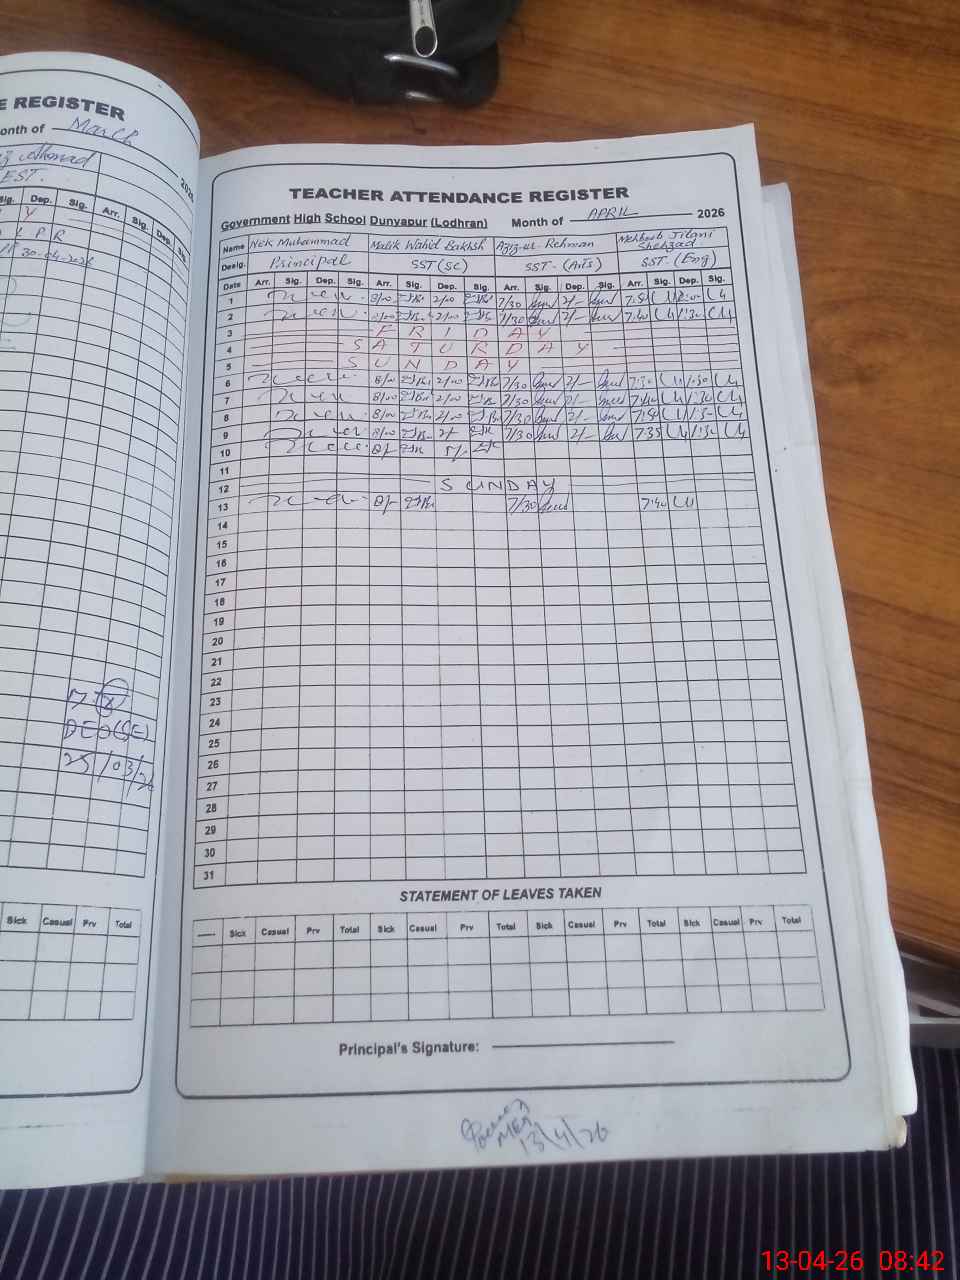 E REGISTER
onth of March
2026
EST.
Sig. Dep. Sig. Arr. Sig. Dep. Sig.
Y
L P R
30-04-2026
DEO(SE)
25/03/26
Sick Casual Prv Total
TEACHER ATTENDANCE REGISTER
Government High School Dunyapur (Lodhran) Month of APRIL 2026
Name Nek Muhammad Malik Wahid Bakhsh Aziz-ul-Rehman Mehboob Jilani Shehzad
Desig. Principal SST (SC) SST-(Arts) SST-(Eng)
Date Arr. Sig. Dep. Sig. Arr. Sig. Dep. Sig. Arr. Sig. Dep. Sig. Arr. Sig. Dep. Sig.
1 8/00 2/00 7/30 2/-
2 8/00 2/00 7/30 2/- 7:40 1:30
3 FRIDAY
4 SATURDAY
5 SUNDAY
6 8/00 2/00 7/30 2/- 7:30 1:30
7 8/00 2/00 7/30 2/- 7:40 1:30
8 8/00 2/00 7/30 2/-
9 8/00 2/- 7/30 2/- 7:35 1:30
10 8/- 5/-
11
12 SUNDAY
13 8/- 7/30 7:40
14
15
16
17
18
19
20
21
22
23
24
25
26
27
28
29
30
31
STATEMENT OF LEAVES TAKEN
----- Sick Casual Prv Total Sick Casual Prv Total Sick Casual Prv Total Sick Casual Prv Total
Principal's Signature:
MEA
13/4/26
13-04-26 08:42